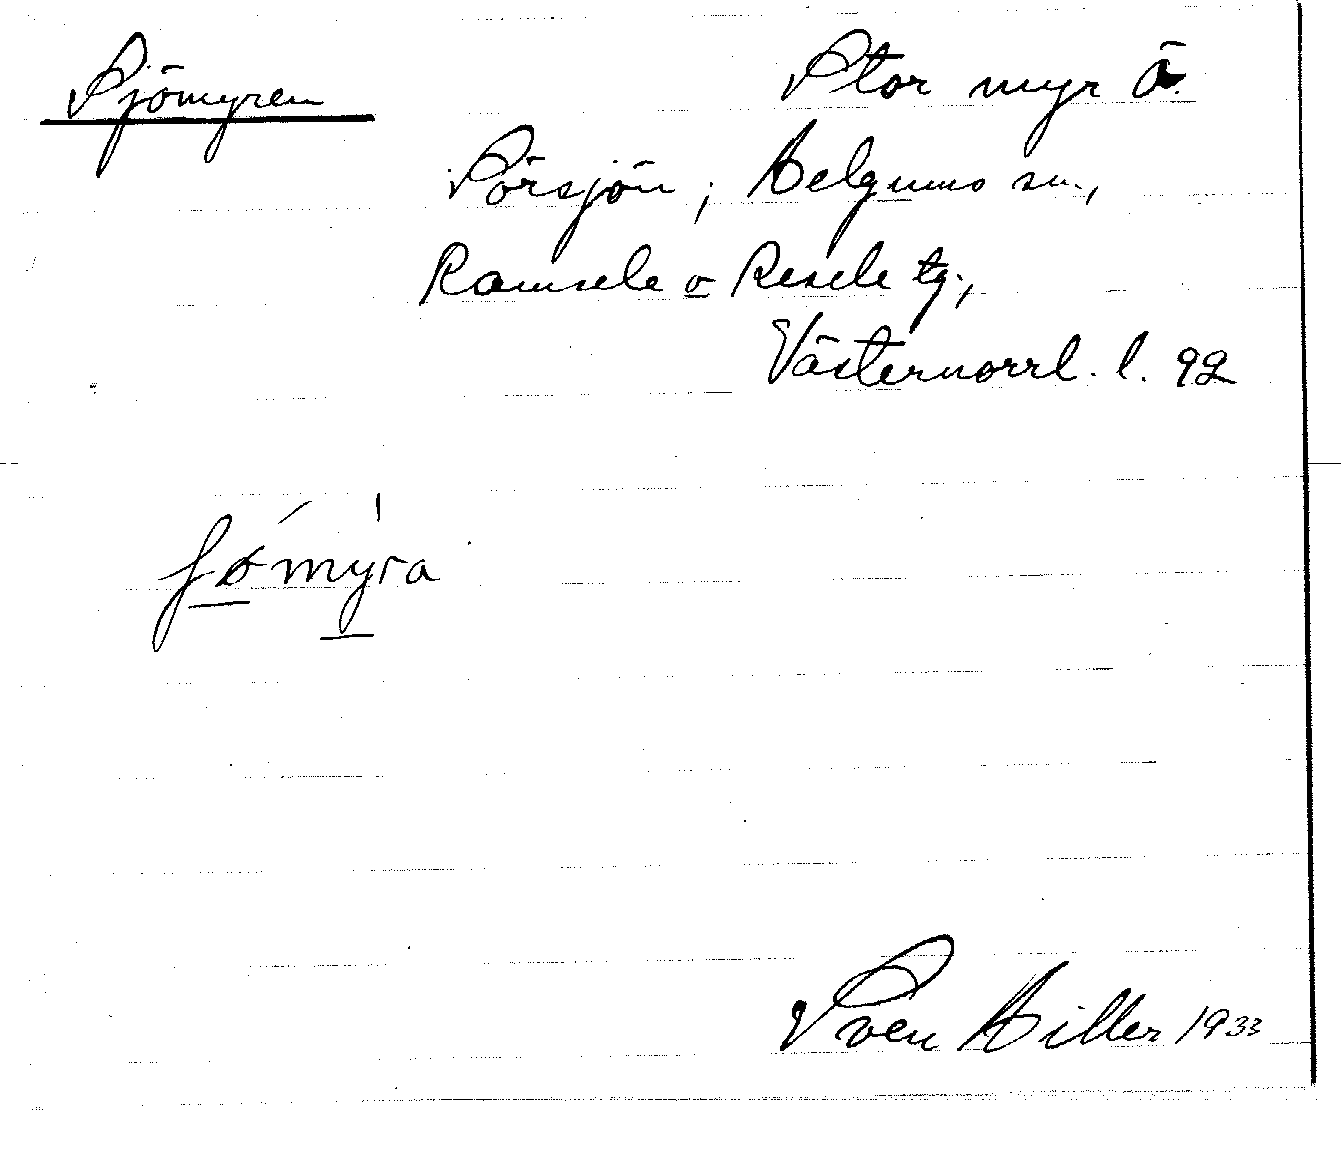 Sjömyren
Stor myr Ö.
Sörsjön; Helgums sn.,
Ramsele o Resele tg.,
Västernorrl. l. 92
ʃømyra
Sven Hiller 1933